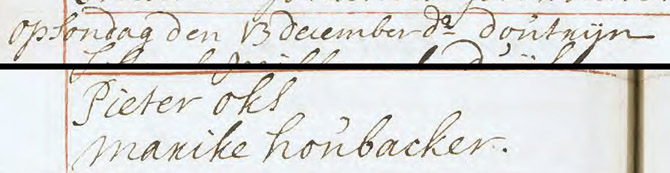 op sondag den 13 december dº doútrijn
Pieter oks
Marike hoúbacker.